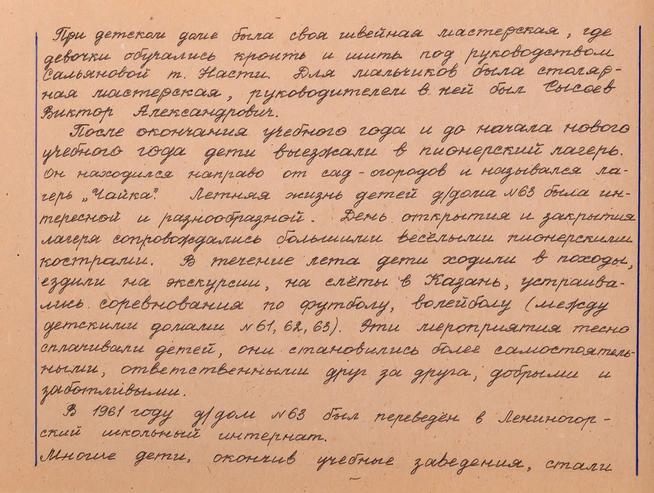 При детском доме была своя швейная мастерская, где
девочки обучались кроить и шить под руководством
Сальяновой т. Насти. Для мальчиков была столяр-
ная мастерская, руководителем в ней был Сысоев
Виктор Александрович.
После окончания учебного года и до начала нового
учебного года дети выезжали в пионерский лагерь.
Он находился направо от сад-огородов и назывался ла-
герь „Чайка". Летняя жизнь детей д/дома №63 была ин-
тересной и разнообразной. День открытия и закрытия
лагеря сопровождались большими весёлыми пионерскими
кострами. В течение лета дети ходили в походы,
ездили на экскурсии, на слёты в Казань, устраива-
лись соревнования по футболу, волейболу (между
детскими домами №61, 62, 63). Эти мероприятия тесно
сплачивали детей, они становились более самостоятель-
ными, ответственными друг за друга, добрыми и
заботливыми.
В 1961 году д/дом №63 был переведён в Лениногор-
ский школьный интернат.
Многие дети, окончив учебные заведения, стали